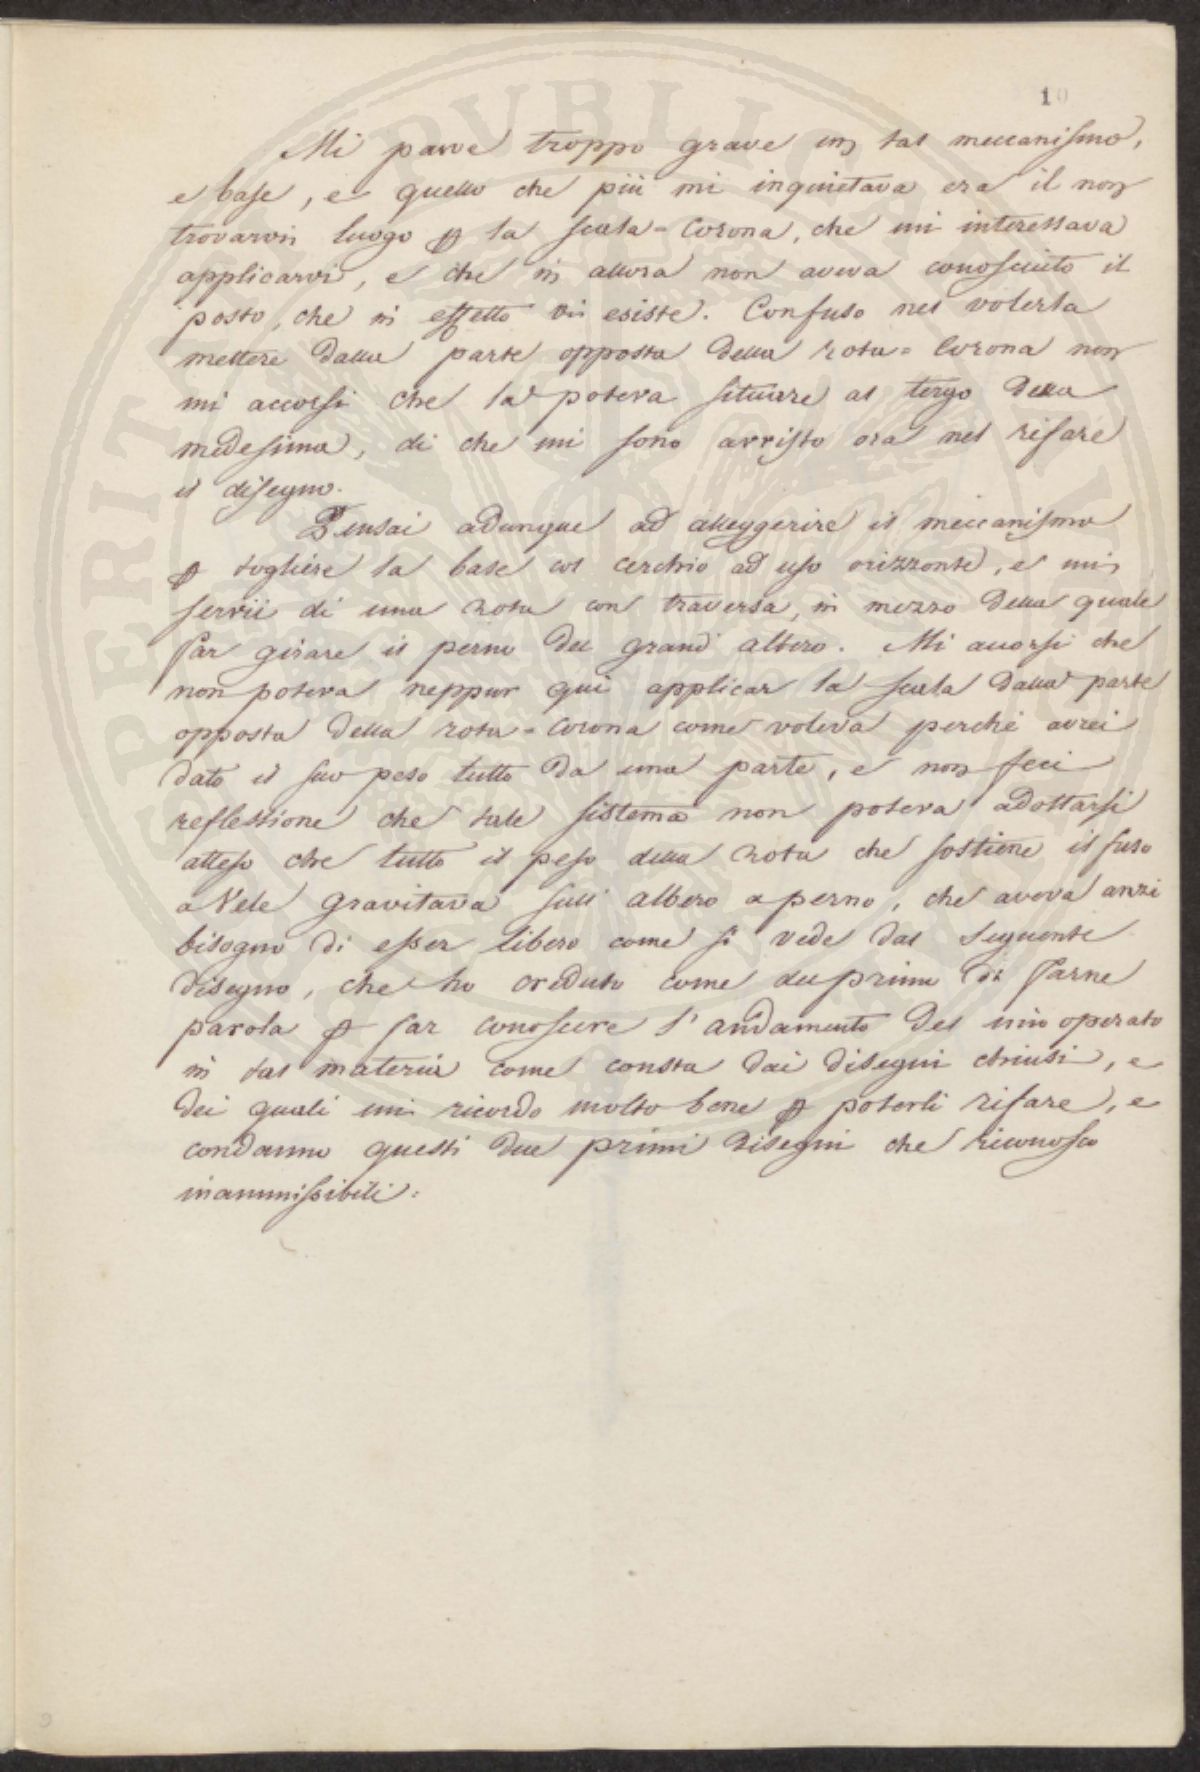 10
Mi parve troppo grave un tal meccanismo,
e base, e quello che più mi inquietava era il non
trovarvi luogo p la scala = Corona, che mi interessava
applicarvi, e che in allora non aveva conosciuto il
posto, che in effetto vi esiste. Confuso nel volerla
mettere dalla parte opposta della rota = Corona non
mi accorsi che la poteva situare al tergo della
medesima, di che mi sono avvisto ora nel rifare
il disegno.
Pensai adunque ad alleggerire il meccanismo
p togliere la base col cerchio ad uso orizzonte, e mi
servii di una rota con traversa, in mezzo della quale
far girare il perno del grand' albero. Mi accorsi che
non poteva neppur qui applicar la scala dalla parte
opposta della rota = Corona come voleva perché avrei
dato il suo peso tutto da una parte, e non feci
reflessione che tale sistema non poteva adottarsi
atteso che tutto il peso della rota che sostiene il fuso
a Vele gravitava sull' albero a perno, che aveva anzi
bisogno di esser libero come si vede dal seguente
disegno, che ho creduto come del primo di farne
parola p far conoscere l' andamento del mio operato
in tal materia come consta dai disegni chiusi, e
dei quali mi ricordo molto bene p poterli rifare, e
condanno questi due primi disegni che riconosco
inammissibili.
PERITIA PUBLICA
9